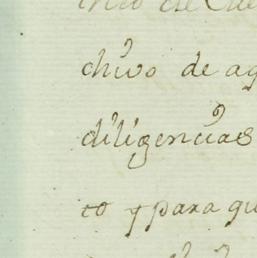 chivo de ag
diligencias
to y para qu